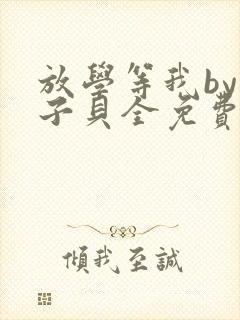 放學等我by
子貝全免費
傾我至誠